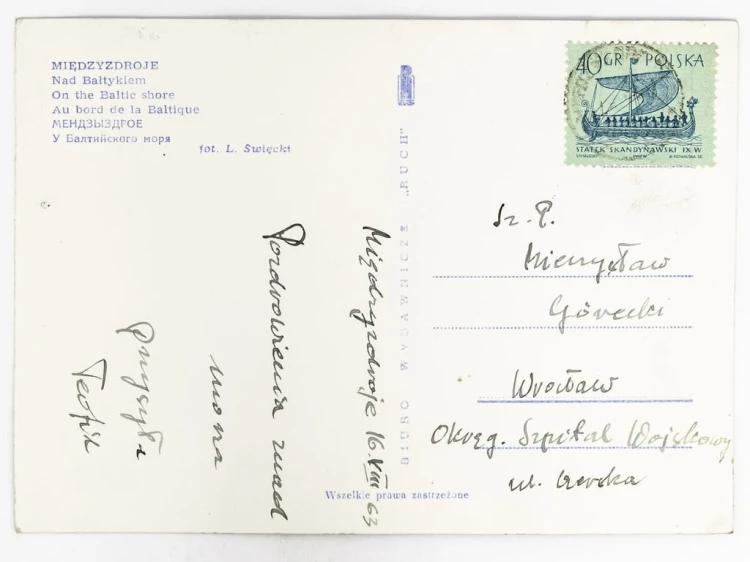 MIĘDZYZDROJE
Nad Bałtykiem
On the Baltic shore
Au bord de la Baltique
МЕНДЗЫЗДРОЕ
У Балтийского моря
fot. L. Święcki
BIURO WYDAWNICZE „RUCH"
40 GR POLSKA
STATEK SKANDYNAWSKI IX W
Międzyzdroje 16.VIII 63
Pozdrowienia znad
morza
przysyła
Teofil
Sz. P.
Mieczysław
Górecki
Wrocław
Okręg. Szpital Wojskowy
ul.
Wszelkie prawa zastrzeżone